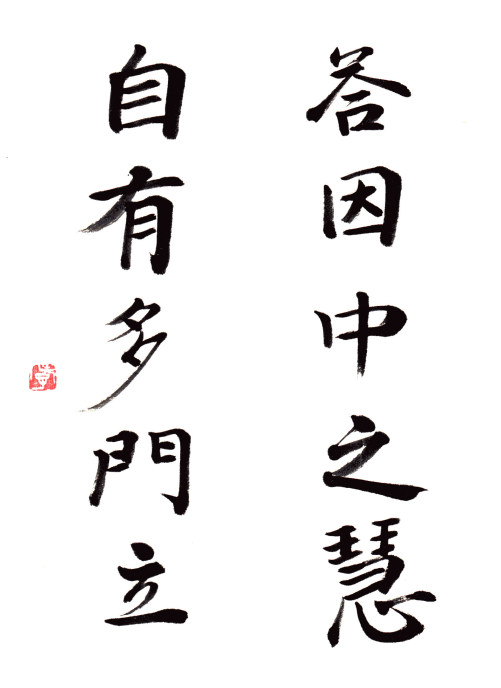 答因中之慧
自有多門立